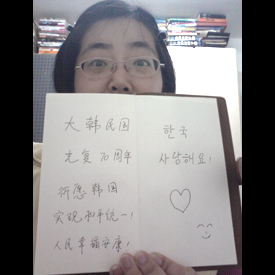 大韩民国
光复70周年
祈愿韩国
实现和平统一!
人民幸福安康!
한국
사랑해요!